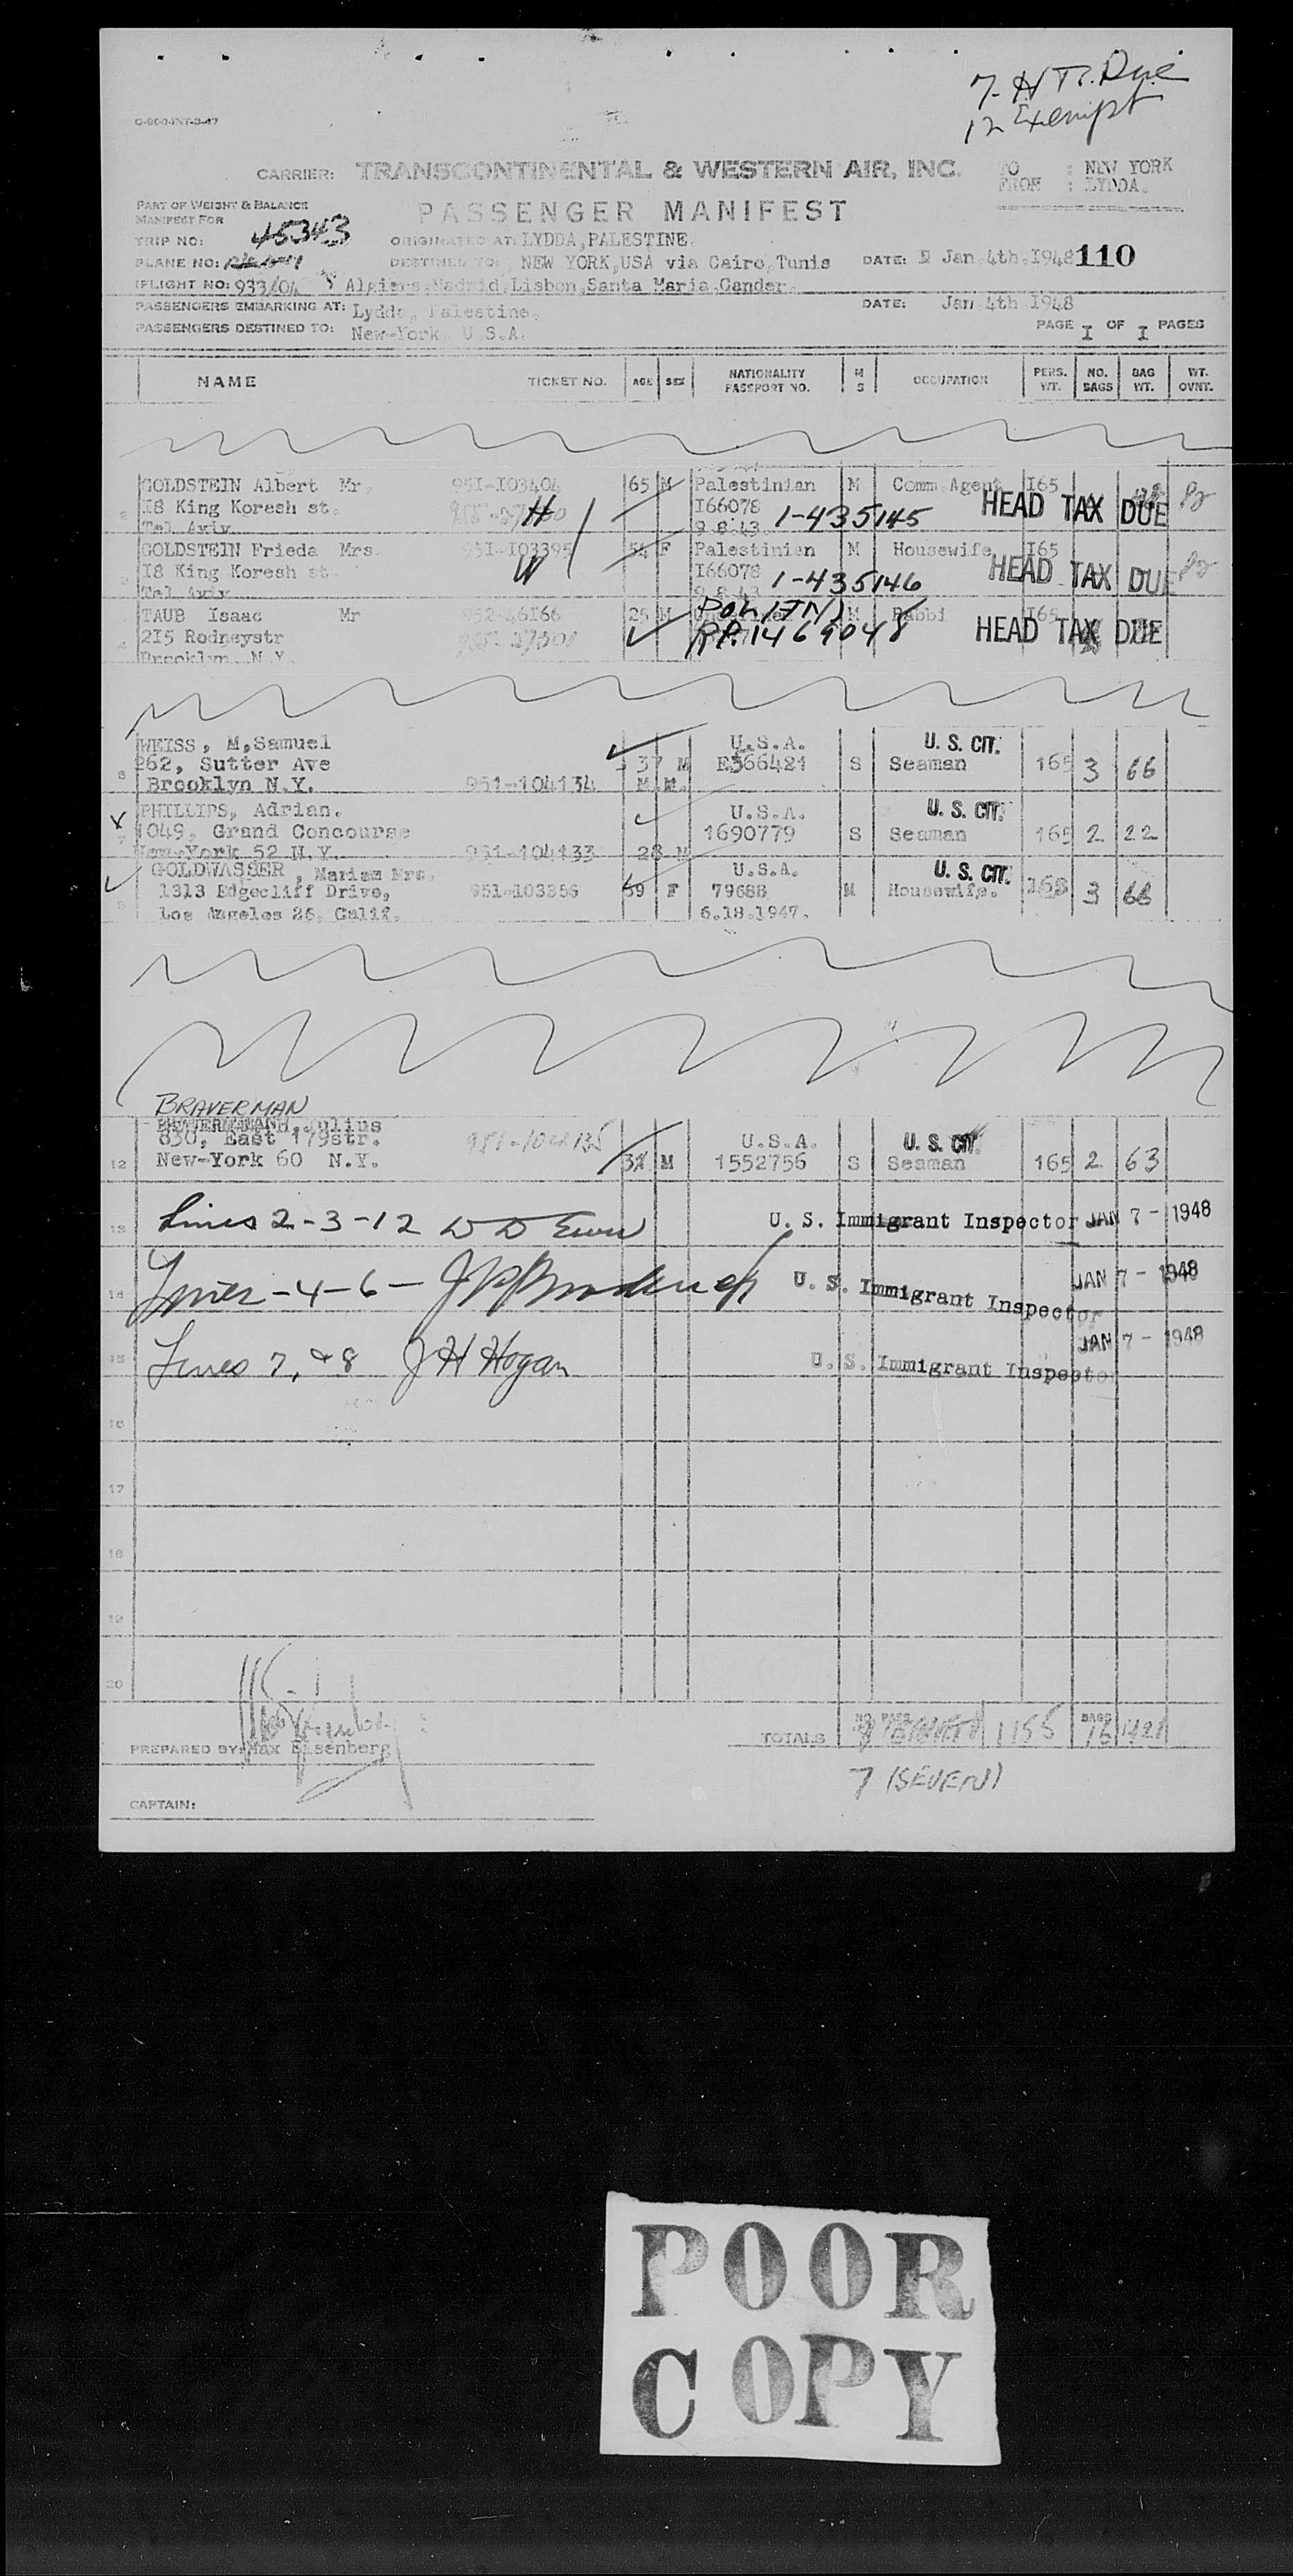 7- H Tx. Due
12 Exempt
O-900-INT-3-47
CARRIER: TRANSCONTINENTAL & WESTERN AIR, INC. TO : NEW YORK
FROM : LYDDA.
PART OF WEIGHT & BALANCE
MANIFEST FOR
PASSENGER MANIFEST
TRIP NO: 45343 ORIGINATED AT: LYDDA, PALESTINE.
PLANE NO: DESTINED TO: NEW YORK, USA via Cairo, Tunis DATE: Jan 4th 1948 110
FLIGHT NO: 933/04 Algiers, Madrid, Lisbon, Santa Maria, Gander.
PASSENGERS EMBARKING AT: Lydda, Palestine. DATE: Jan 4th 1948
PASSENGERS DESTINED TO: New-York. U.S.A. PAGE I OF I PAGES
NAME TICKET NO. AGE SEX NATIONALITY PASSPORT NO. M S OCCUPATION PERS. WT. NO. BAGS BAG WT. WT. OVNT.
GOLDSTEIN Albert Mr. 951-I03404 65 M Palestinian M Comm Agent I65
2 I8 King Koresh st. H I66078 1-435145 HEAD TAX DUE
Tel Aviv. 9.8.43
GOLDSTEIN Frieda Mrs. 951-I03395 54 F Palestinian M Housewife I65
3 I8 King Koresh st. W I66078 1-435146 HEAD TAX DUE
Tel Aviv 9.8.43
TAUB Isaac Mr 952-46I66 25 M M Rabbi I65
4 2I5 Rodneystr RP. 1469048 HEAD TAX DUE
Brooklyn N.Y.
WEISS, M,Samuel U.S.A. U. S. CIT.
6 262, Sutter Ave 37 M E366421 S Seaman 165 3 66
Brooklyn N.Y. 951-104134 M M.
PHILLIPS, Adrian. U.S.A. U. S. CIT.
X 7 1049, Grand Concourse 1690779 S Seaman 165 2 22
New-York 52 N.Y. 951-104133 28 M
GOLDWASSER, Mariam Mrs. U.S.A. U. S. CIT.
1313 Edgecliff Drive, 951-103356 59 F 79688 M Housewife. 165 3 66
Los Angeles 26, Calif. 6.18.1947.
BRAVERMAN
Julius
830, East 179str. 951-104135 U.S.A. U. S. CIT.
12 New-York 60 N.Y. M 1552756 S Seaman 165 2 63
13 Lines 2-3-12 U. S. Immigrant Inspector JAN 7 - 1948
14 Lines-4-6- U. S. Immigrant Inspector JAN 7 - 1948
15 Lines 7, & 8 J H Hogan U. S. Immigrant Inspector JAN 7 - 1948
16
17
18
19
20
PREPARED BY: Max Eisenberg TOTALS NO. PASS. 1155 BAGS
7 (SEVEN)
CAPTAIN:
POOR
COPY